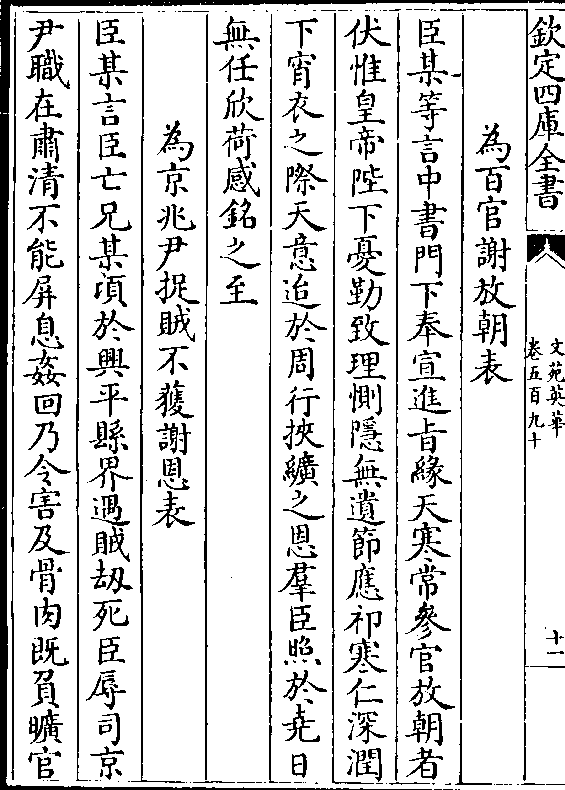 欽定四庫全書
文苑英華
卷五百九十
十二
為百官謝放朝表
臣某等言中書門下奉宣進旨緣天寒常參官放朝者
伏惟皇帝陛下憂勤致理惻隱無遺節應祁寒仁深潤
下宵衣之際天意迨於周行挾纊之恩羣臣照於堯日
無任欣荷感銘之至
為京兆尹捉賊不獲謝恩表
臣某言臣亡兄某頃於興平縣界遇賊劫死臣辱司京
尹職在肅清不能屏息姦回乃令害及骨肉既負曠官